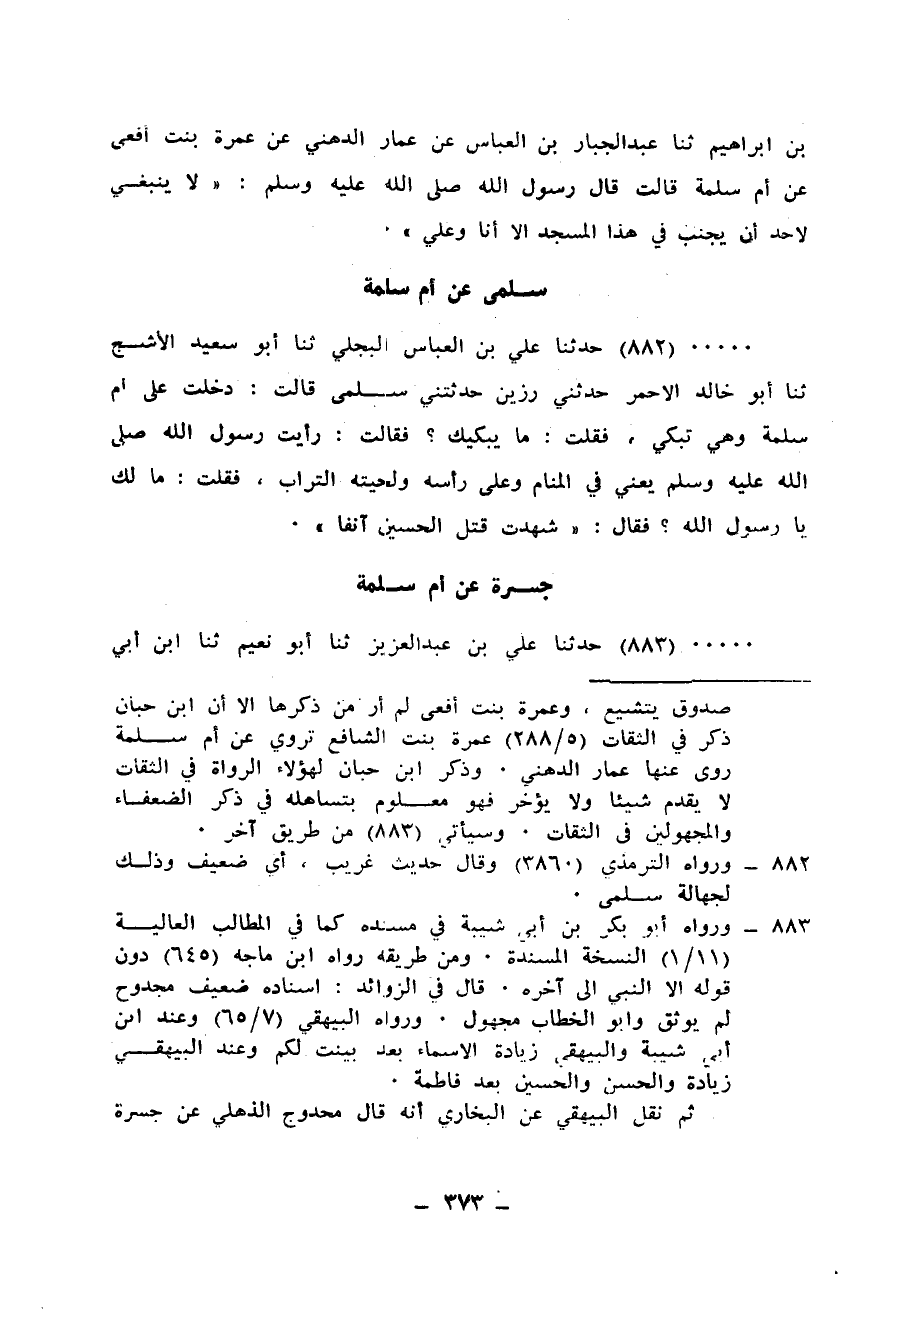 بن ابراهيم ثنا عبدالجبار بن العباس عن عمار الدهني عن عمرة بنت أفعى
عن أم سلمة قالت قال رسول الله صلى الله عليه وسلم : « لا ينبغي
لاحد أن يجنب في هذا المسجد الا أنا وعلي » ٠
سلمى عن أم سلمة
٠٠٠٠٠ (٨٨٢) حدثنا علي بن العباس البجلي ثنا أبو سعيد الأشج
ثنا أبو خالد الاحمر حدثني رزين حدثتني سلمى قالت : دخلت على ام
سلمة وهي تبكي ، فقلت : ما يبكيك ؟ فقالت : رأيت رسول الله صلى
الله عليه وسلم يعني في المنام وعلى رأسه ولحيته التراب ، فقلت : ما لك
يا رسول الله ؟ فقال : « شهدت قتل الحسين آنفا » ٠
جسرة عن أم سلمة
٠٠٠٠٠ (٨٨٣) حدثنا علي بن عبدالعزيز ثنا أبو نعيم ثنا ابن أبي
صدوق يتشيع ، وعمرة بنت أفعى لم أر من ذكرها الا أن ابن حبان
ذكر في الثقات (٢٨٨/٥) عمرة بنت الشافع تروي عن أم سلمة
روى عنها عمار الدهني ٠ وذكر ابن حبان لهؤلاء الرواة في الثقات
لا يقدم شيئا ولا يؤخر فهو معلوم بتساهله في ذكر الضعفاء
والمجهولين في الثقات ٠ وسيأتي (٨٨٣) من طريق آخر ٠
٨٨٢ – ورواه الترمذي (٣٨٦٠) وقال حديث غريب ، أي ضعيف وذلك
لجهالة سلمى ٠
٨٨٣ – ورواه أبو بكر بن أبي شيبة في مسنده كما في المطالب العالية
(١/١١) النسخة المسندة ٠ ومن طريقه رواه ابن ماجه (٦٤٥) دون
قوله الا النبي الى آخره ٠ قال في الزوائد : اسناده ضعيف مجدوح
لم يوثق وابو الخطاب مجهول ٠ ورواه البيهقي (٦٥/٧) وعند ابن
أبي شيبة والبيهقي زيادة الاسماء بعد بينت لكم وعند البيهقي
زيادة والحسن والحسين بعد فاطمة ٠
ثم نقل البيهقي عن البخاري أنه قال محدوج الذهلي عن جسرة
– ٣٧٣ –